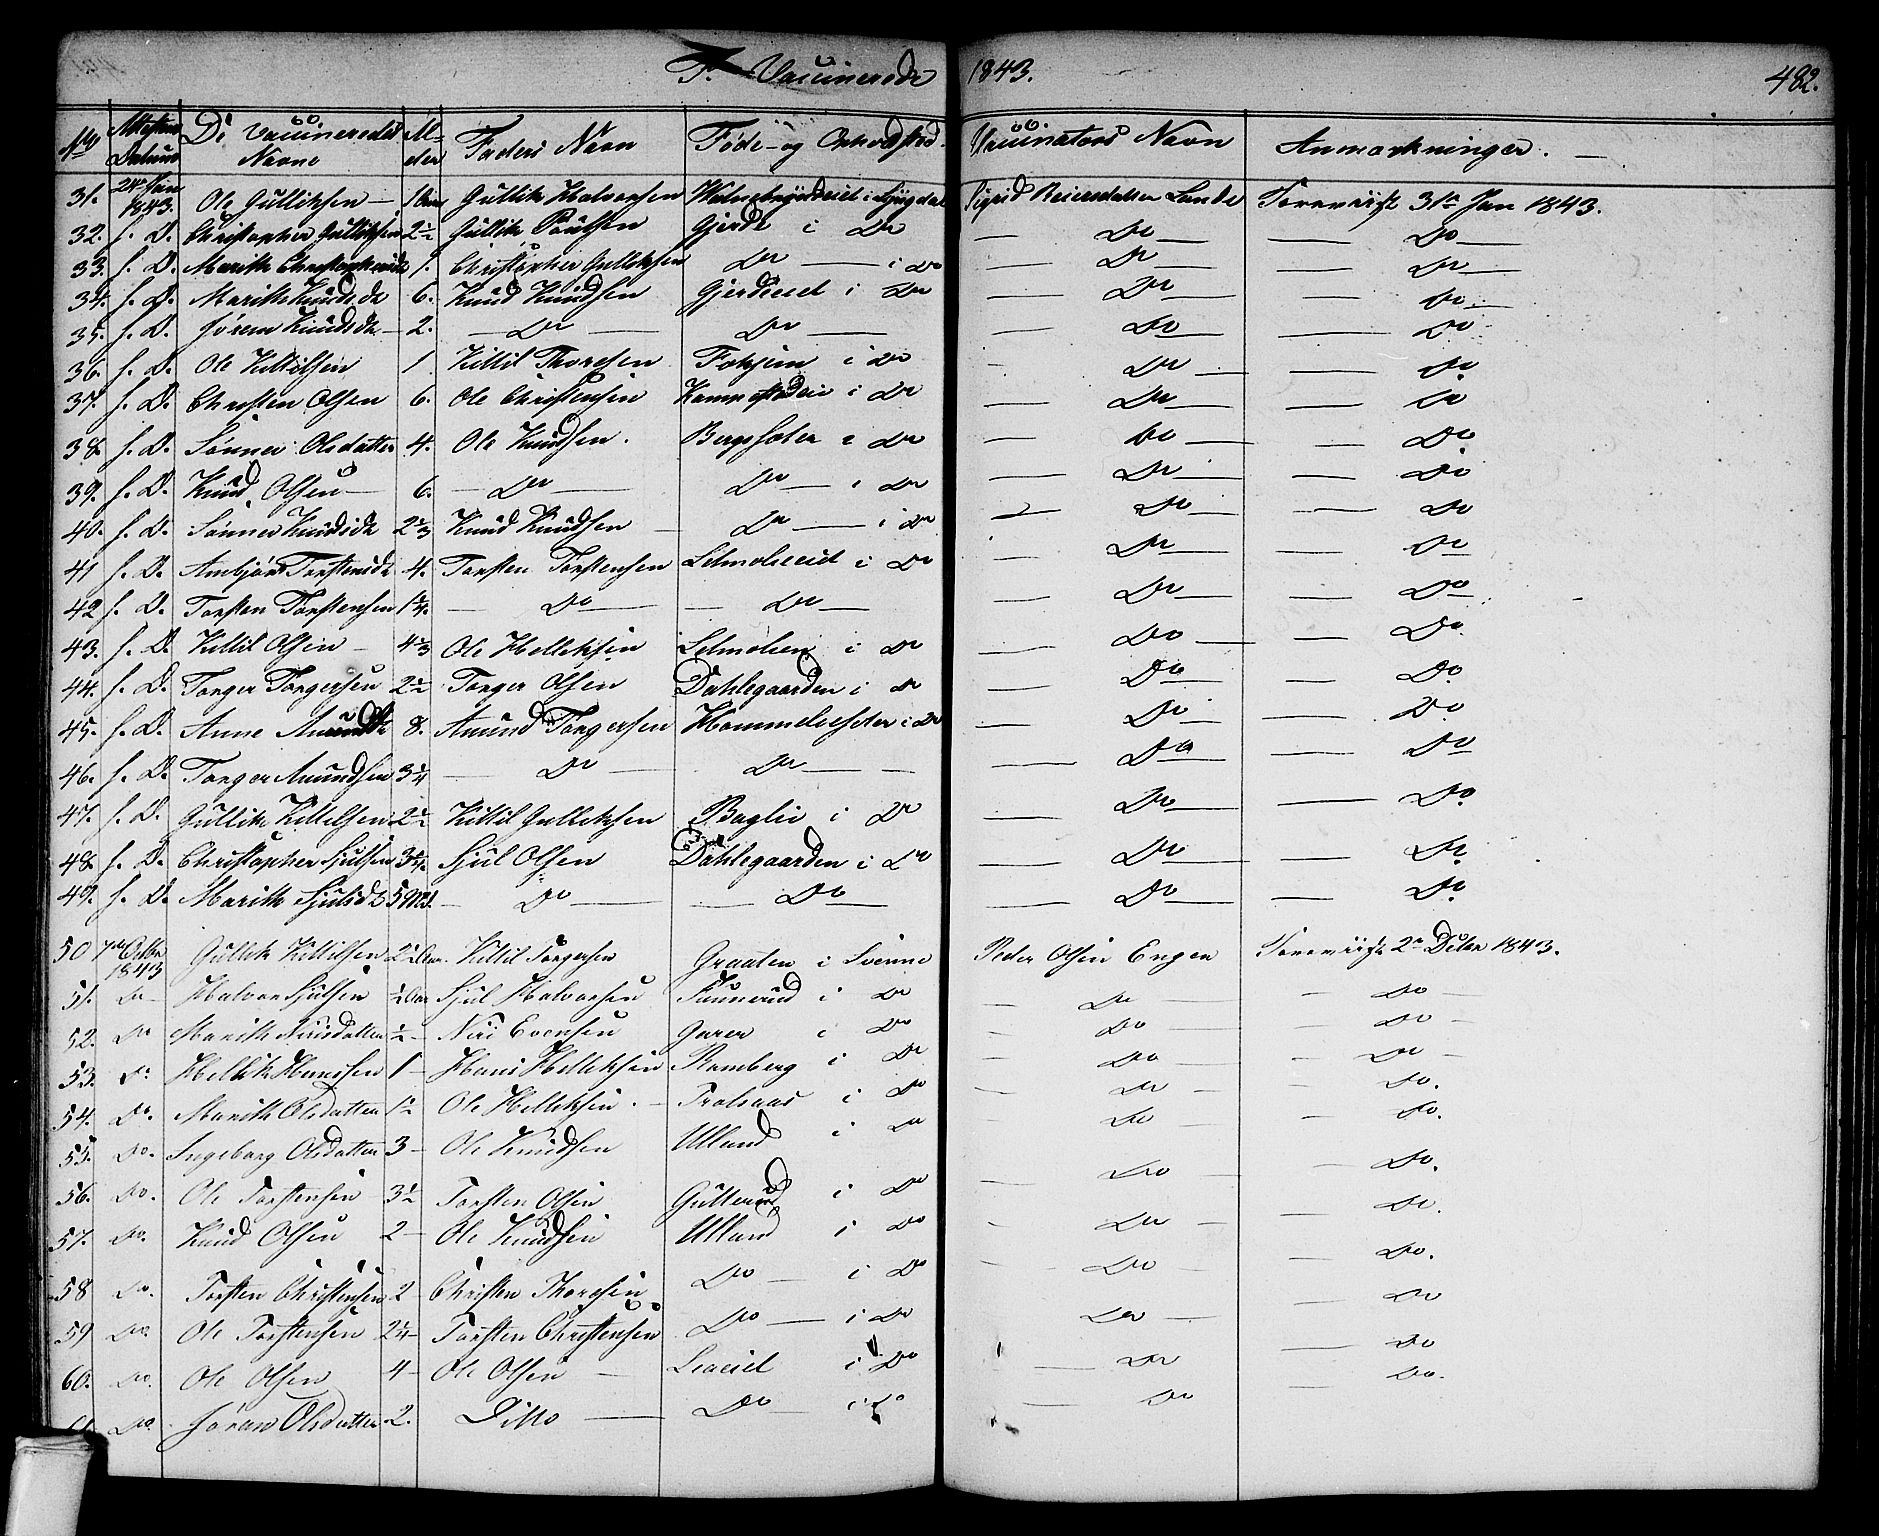 F. Vaccinerede 1843. 482.
No Attestens Datum De Vaccineredes Navne Alder Faders Navn Føde- og Opholdssted Vaccinators Navn Anmærkninger.
31. 24de Jan 1843. Ole Gulliksen 1 Gullik Halvorsen i Sigdal Sigrid Reiersdatter Lande Foreviist 31te Jan 1843.
32. s. D. Christopher Gulliksen 2½ Gullik Paulsen Gjerde i Do Do Do
33. s. D. Marith 1. Christopher Gulliksen Do i Do Do Do
34. s. D. Marithe Knudsdt 6. Knud Knudsen Gjerdeeiet i Do Do Do
35. s. D. Jøren Knudsdt 2. Do Do Do Do
36. s. D. Ole Kittilsen 1 Kittil Thoresen i Do Do Do
37. s. D. Christen Olsen 6. Ole Christensen i Do Do Do
38. s. D. Sønner Olsdatter 4. Ole Knudsen. Bergsæter i Do Do Do
39. s. D. Knud Olsen 6. Do Do i Do Do Do
40. s. D. Sønner Knudsdt 2⅓ Knud Knudsen Do i Do Do Do
41 s. D. Ambjør Torstensdt 4. Torsten Torstensen i Do Do Do
42 s. D. Torsten Torstensen 1¼ Do Do Do Do
43. s. D. Kittil Olsen 4⅓ Ole Helleksen i Do Do Do
44. s. D. Torger Torgersen 2½ Torger Olsen Dahlegaarden i Do Do Do
45. s. D. Anne 8. Amund Torgersen i Do Do Do
46. s. D. Torger Amundsen 3¼ Do Do Do Do
47. s. D. Gullik Kittelsen 2½ Kittil Gulleksen Baglie i Do Do Do
48. s. D. Christopher Sjulsen 3¼ Sjul Olsen Dahlegaarden i Do Do Do
49. s. D. Marith Sjulsdt 5 Md. Do Do Do Do
50 7de Octbr 1843 Gullek Kittilsen 2½ Aar. Kittil Torgersen Graaten i Svenne Peder Olsen Engen Foreviist 2n Decbr 1843.
51. Do Halvor Sjulsen ½ Aar Sjul Halvorsen i Do Do Do
52. Do Marith Nirisdatter ½ Niri Evensen Gurer i Do Do Do
53. Do Hellik Hansen 1 Hans Helleksen Ramberg i Do Do Do
54. Do. Marith Olsdatter 1½ Ole Helleksen. i Do Do Do.
55. Do. Ingeborg Olsdatter 3 Ole Knudsen Ulland i Do Do Do.
56. Do. Ole Torstensen 3½ Torsten Olsen Gutterud i Do Do Do.
57. Do. Knud Olsen 2 Ole Knudsen Ulland i Do Do Do.
58 Do. Torsten Christensen 2 Christen Thoresen Do i Do Do Do.
59 Do. Ole Torstensen 2¼ Torsten Christensen Do i Do Do Do
60. Do. Ole Olsen 4 Ole Olsen i Do Do Do
61 Do. Jøran Olsdatter 2. Ditto Do i Do Do Do.